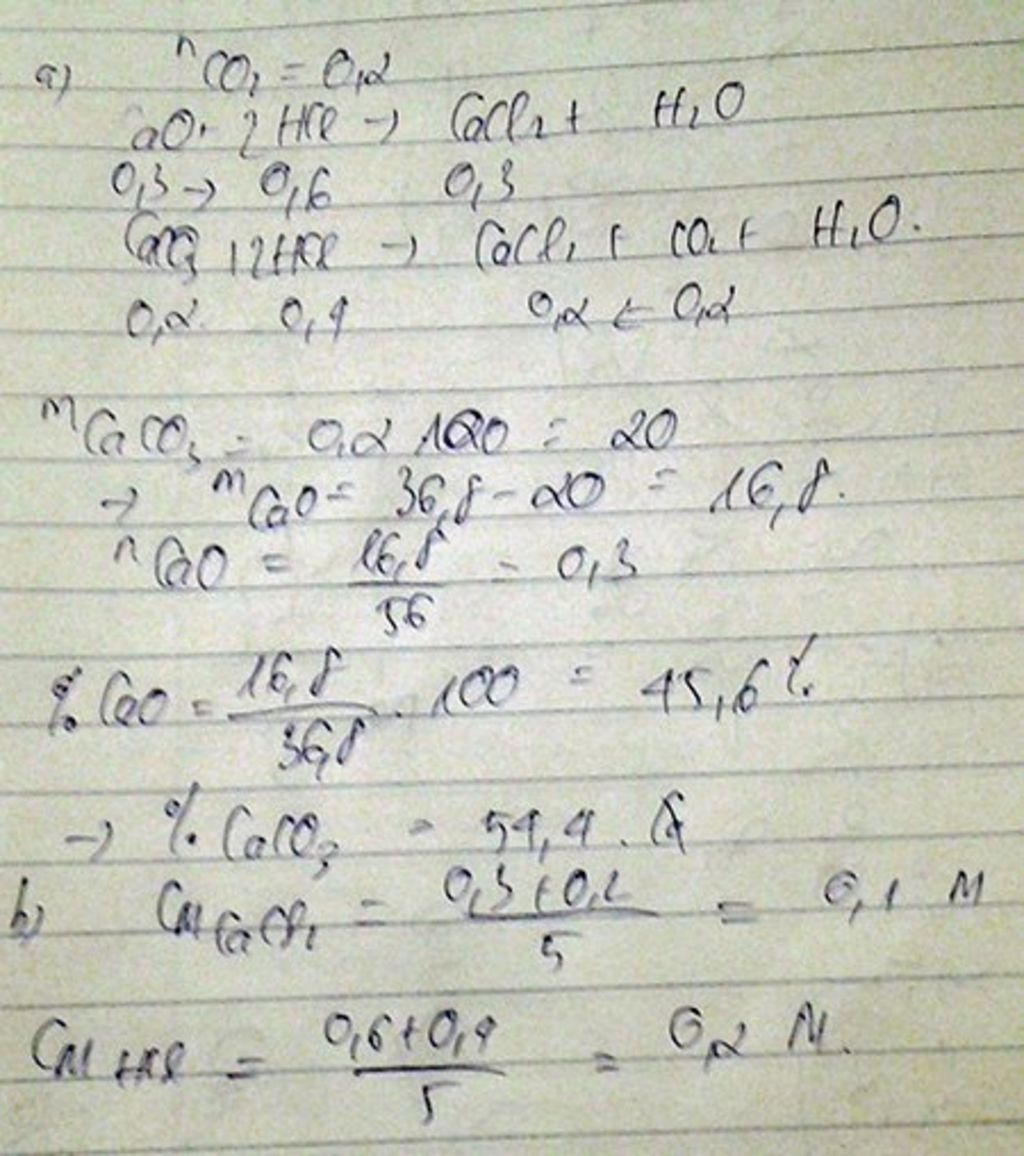 a) nCO₂ = 0,2
CaO + 2HCl → CaCl₂ + H₂O
0,3 → 0,6 0,3
CaCO₃ + 2HCl → CaCl₂ + CO₂ + H₂O.
0,2 0,4 0,2 ← 0,2
mCaCO₃ = 0,2 100 = 20
→ mCaO = 36,8 - 20 = 16,8.
nCaO = 16,8/56 = 0,3
% CaO = 16,8/36,8 . 100 = 45,6%
→ % CaCO₃ = 54,4.
b) CM CaCl₂ = (0,3 + 0,2)/5 = 0,1 M
CM HCl = (0,6 + 0,4)/5 = 0,2 M.